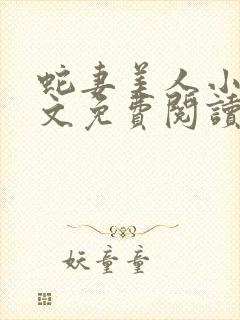 蛇妻美人小
文免費閱讀
妖童童